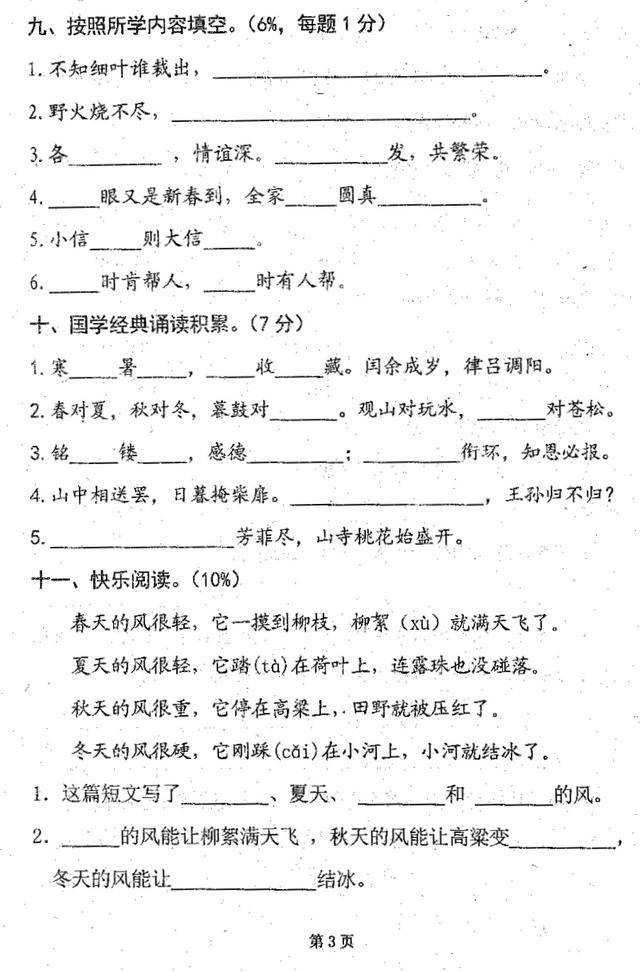 九、按照所学内容填空。(6%，每题1分)
1.不知细叶谁裁出，____________________。
2.野火烧不尽，____________________。
3.各________，情谊深。________发，共繁荣。
4.____眼又是新春到，全家____圆真________。
5.小信____则大信____。
6.____时肯帮人，____时有人帮。
十、国学经典诵读积累。(7分)
1.寒____暑____，____收____藏。闰余成岁，律吕调阳。
2.春对夏，秋对冬，暮鼓对______。观山对玩水，______对苍松。
3.铭____镂____，感德________；________衔环，知恩必报。
4.山中相送罢，日暮掩柴扉。________________，王孙归不归？
5.________________芳菲尽，山寺桃花始盛开。
十一、快乐阅读。(10%)
春天的风很轻，它一摸到柳枝，柳絮（xù）就满天飞了。
夏天的风很轻，它踏(tà)在荷叶上，连露珠也没碰落。
秋天的风很重，它停在高梁上，田野就被压红了。
冬天的风很硬，它刚踩(cǎi)在小河上，小河就结冰了。
1．这篇短文写了________、夏天、________和________的风。
2．______的风能让柳絮满天飞，秋天的风能让高粱变__________，
冬天的风能让____________结冰。
第3页